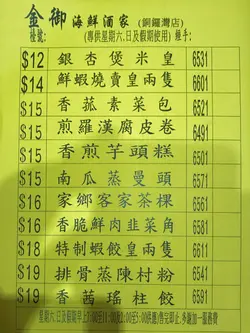 金御海鮮酒家 (銅鑼灣店)
檯號: (專供星期六,日及假期使用) 經手:
$12 銀杏煲米皇 6531
$14 鮮蝦燒賣皇兩隻 6601
$15 香菰素菜包 6521
$15 煎羅漢腐皮卷 6491
$15 香煎芋頭糕 6501
$15 南瓜蒸饅頭 6571
$16 家鄉客家茶粿 6561
$16 香脆鮮肉韭菜角 6581
$18 特制蝦餃皇兩隻 6611
$19 排骨蒸陳村粉 6541
$19 香茜瑤柱餃 6591